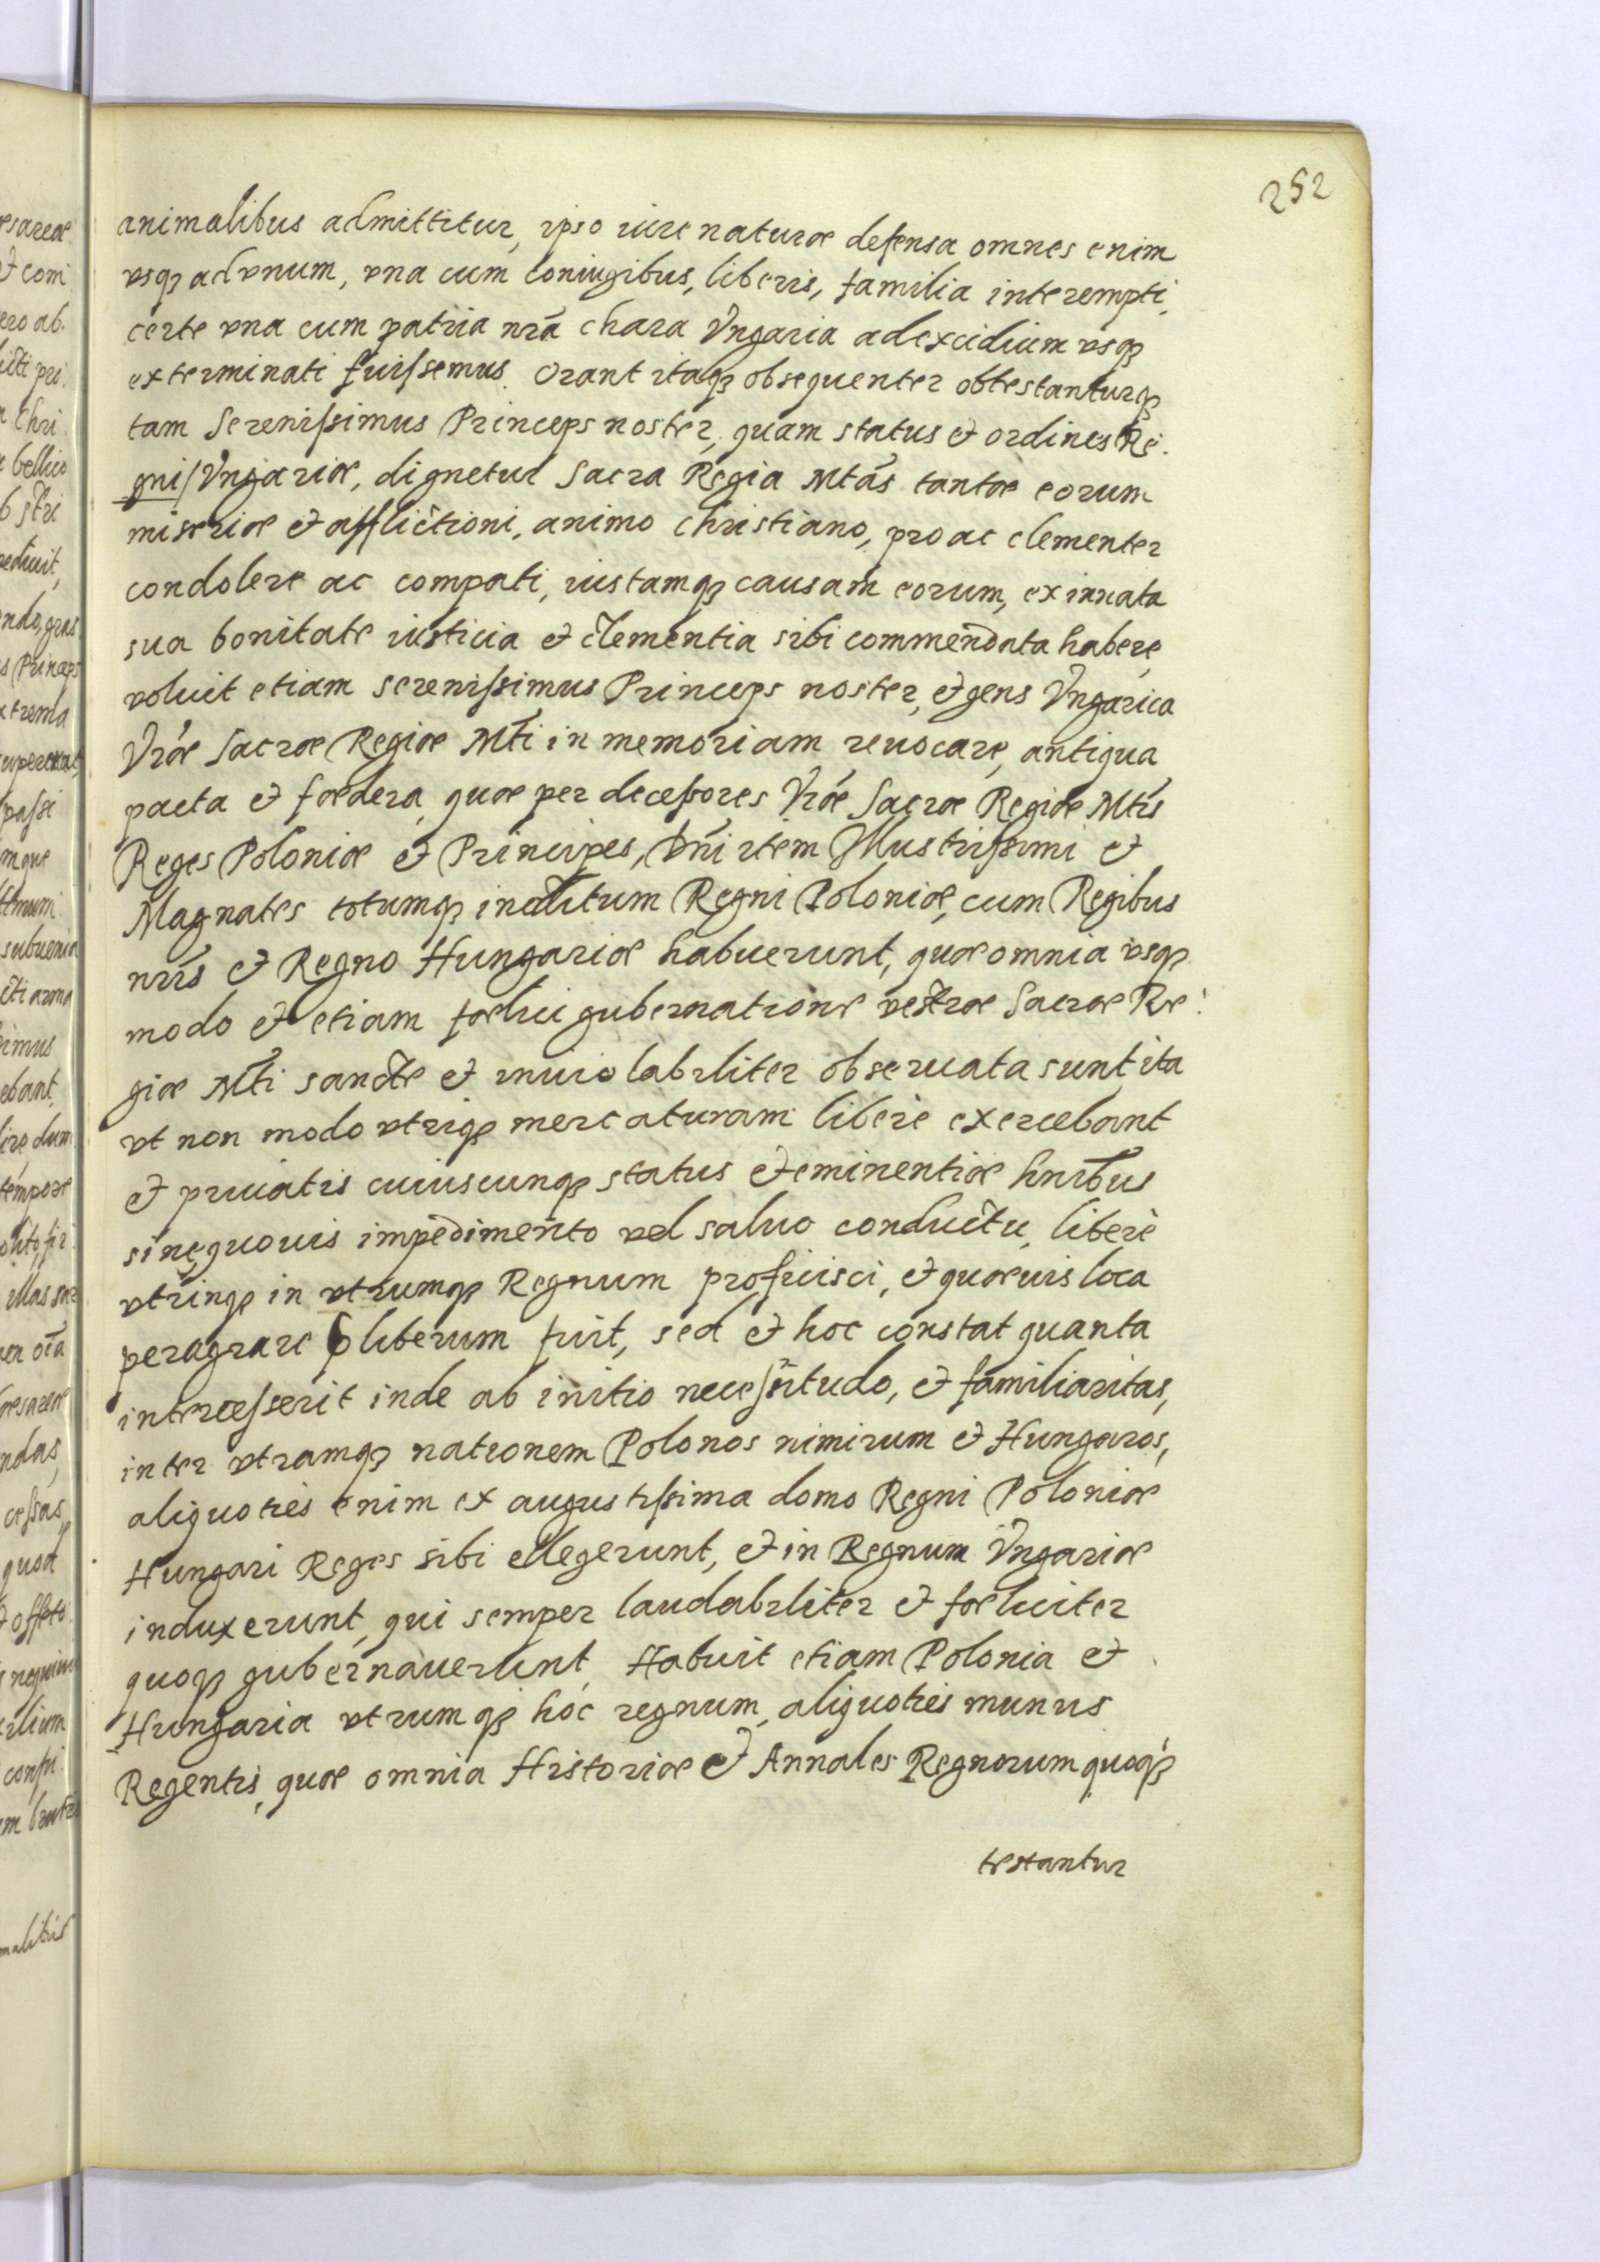 252
animalibus admittitur, ipso iure naturæ defensa omnes enim
vsqꝫ ad vnum, vna cum coniugibus, liberis, familia interempti,
certe vna cum patria nrã chara Vngaria ad excidium vsqꝫ
exterminati fuissemus. Orant itaqꝫ obsequenter obtestanturqꝫ
tam Serenissimus Princeps noster, quam status et ordines Re:
gni Vngariæ, dignetur Sacra Regia Mtás tantæ eorum
miseriæ et afflictioni, animo christiano, pro ac clementer
condolere ac compati, iustamqꝫ causam eorum, ex innata
sua bonitate iusticia et clementia sibi commendata habere,
voluit etiam serenissimus Princeps noster, et gens Vngarica
Vræ Sacræ Regiæ Mti in memoriam reuocare, antiqua
pacta et fœdera, quæ per decessores Vræ Sacræ Regiæ Mtis
Reges Poloniæ et Principes, Dni item Illustrissimi et
Magnates totumqꝫ inclitum Regni Poloniæ, cum Regibus
nris et Regno Hungariæ habuerunt, quæ omnia vsqꝫ
modo et etiam fœlici gubernatione vestræ Sacræ Re:
giæ Mti sancte et inuiolabiliter obseruata sunt ita
vt non modo vtriqꝫ mercaturam liberè exercebant
et priuatis cuiuscunqꝫ status et eminentiæ hnibus
sine quouis impedimento vel saluo conductu, liberè
vtrinqꝫ in vtrumqꝫ Regnum proficisci, et quæuis loca
peragrare liberum fuit, sed et hoc constat quanta
intercesserit inde ab initio necessitudo, et familiaritas,
inter vtramqꝫ nationem Polonos nimirum et Hungaros,
aliquoties enim ex augustissima domo Regni Poloniæ
Hungari Reges sibi ellegerunt, et in Regnum Vngariæ
induxerunt, qui semper laudabiliter et fœliciter
quoqꝫ gubernauerunt, Habuit etiam Polonia et
Hungaria vtrumqꝫ hoc regnum, aliquoties munus
Regentis, quæ omnia Historiæ et Annales Regnorum quoqꝫ
testantur